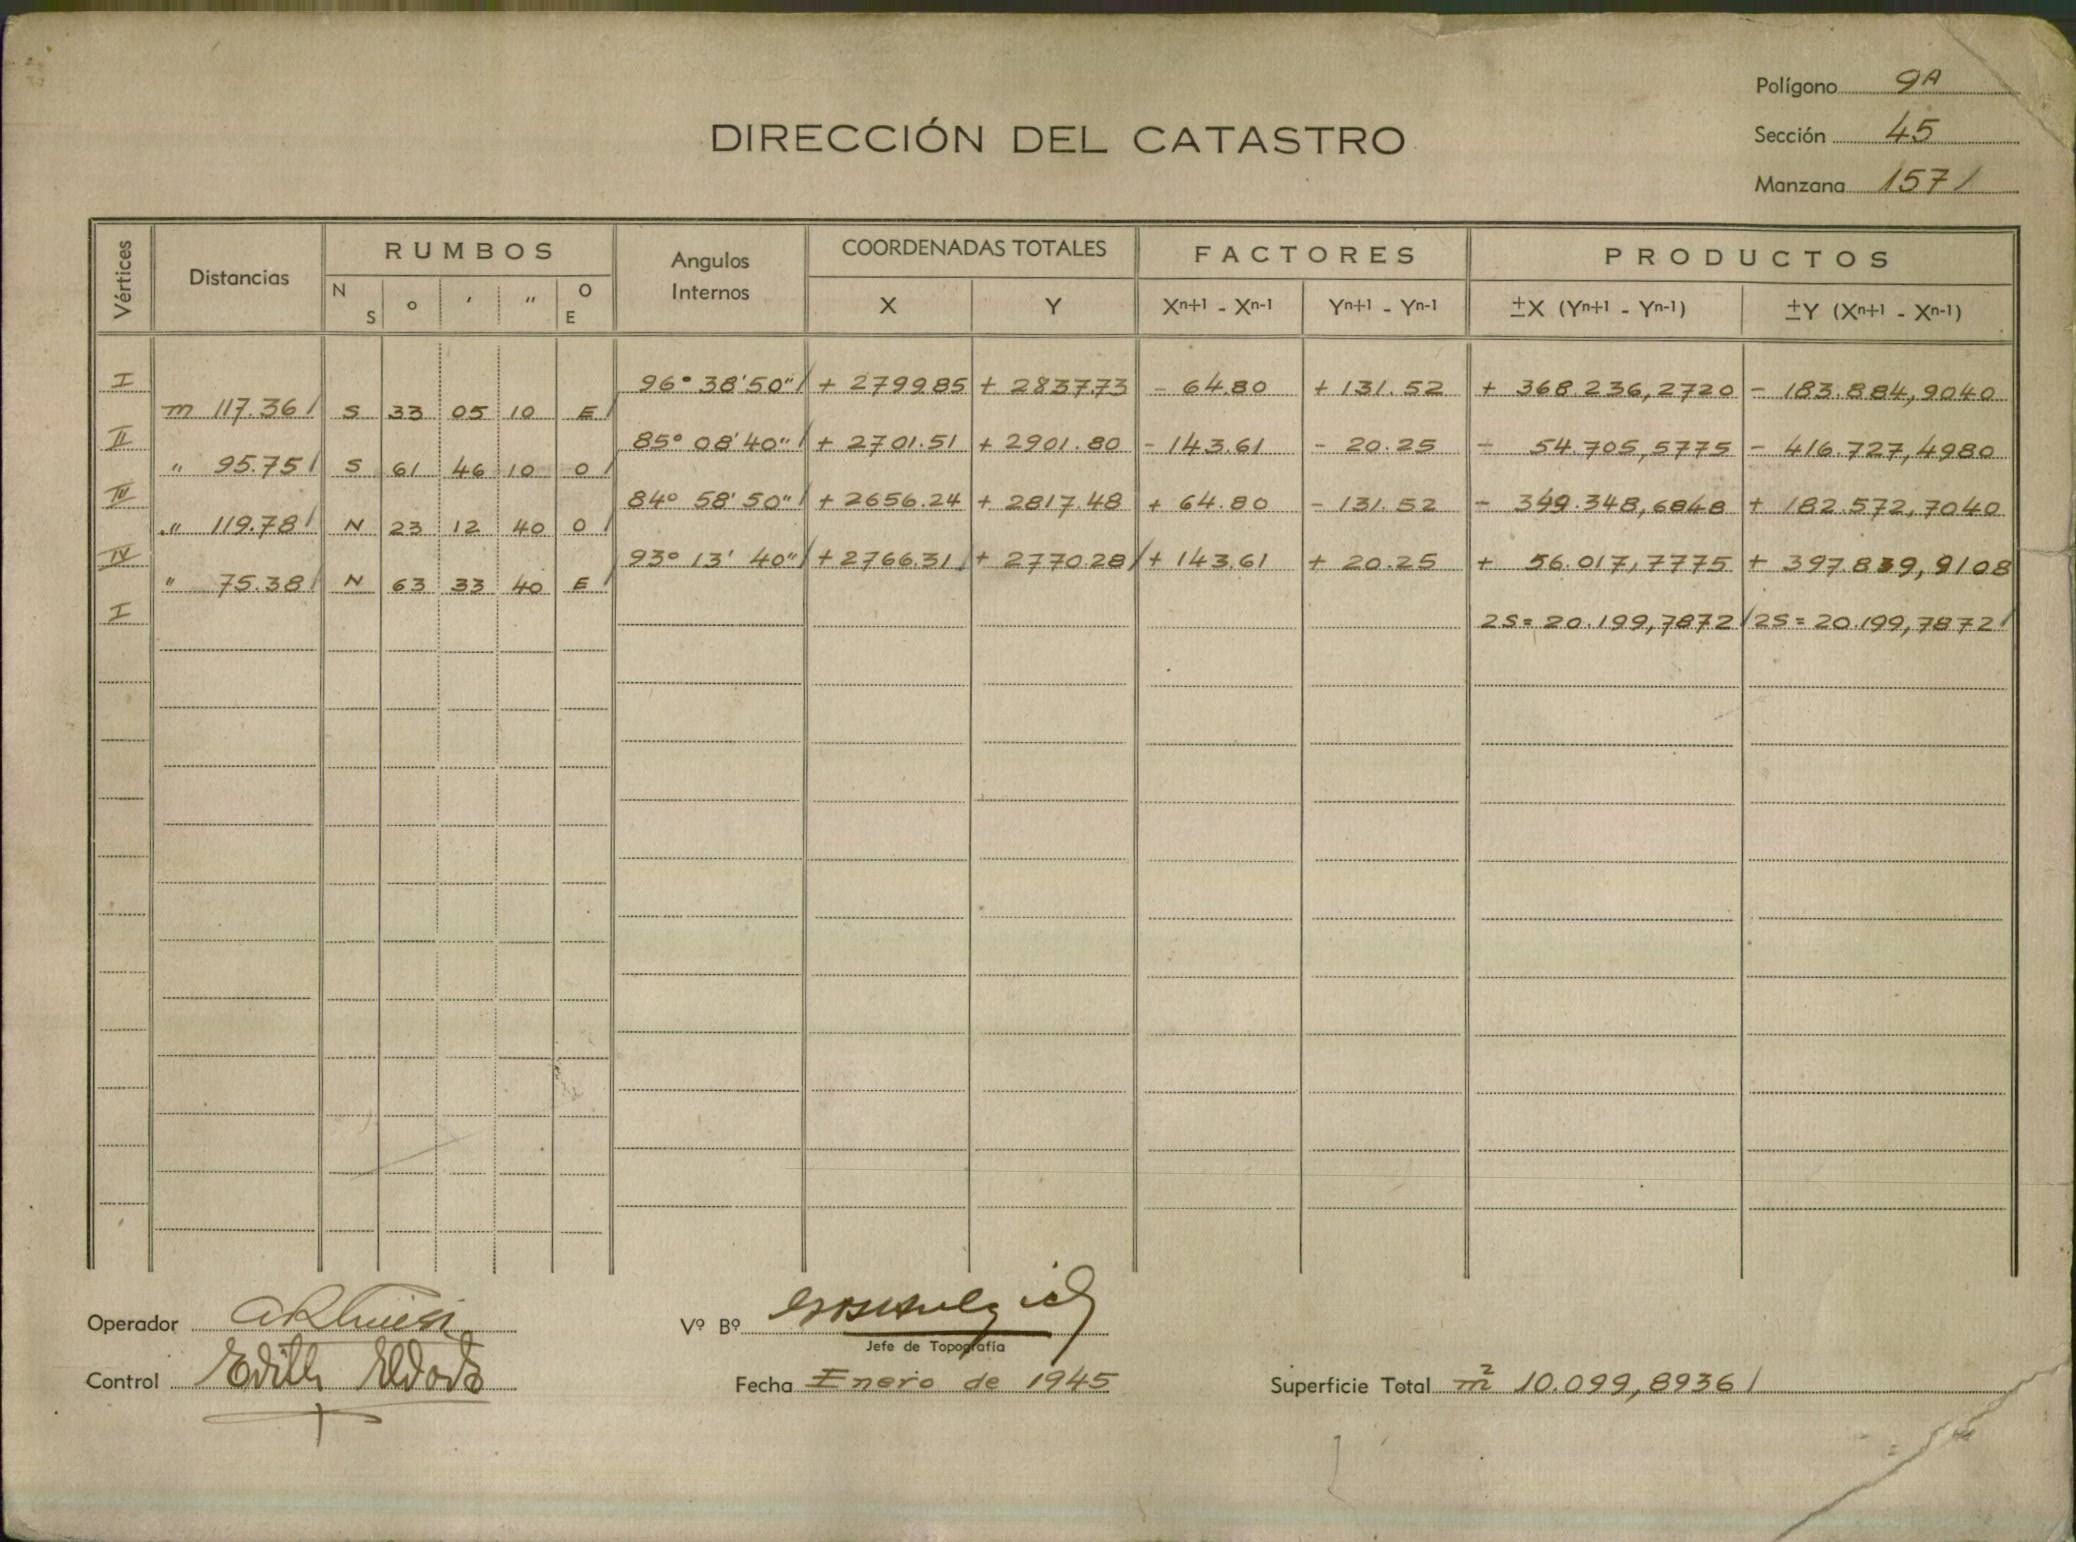 Polígono 9A
Sección 45
Manzana 1571
DIRECCIÓN DEL CATASTRO
Vértices Distancias RUMBOS Angulos Internos COORDENADAS TOTALES FACTORES PRODUCTOS
N S ° ′ ″ O E X Y Xn+1 - Xn-1 Yn+1 - Yn-1 ±X (Yn+1 - Yn-1) ±Y (Xn+1 - Xn-1)
I 96° 38' 50" + 2799.85 + 2837.73 - 64.80 + 131.52 + 368.236,2720 - 183.884,9040
m 117.36 S 33 05 10 E
II 85° 08' 40" + 2701.51 + 2901.80 - 143.61 - 20.25 - 54.705,5775 - 416.727,4980
" 95.75 S 61 46 10 O
III 84° 58' 50" + 2656.24 + 2817.48 + 64.80 - 131.52 - 349.348,6848 + 182.572,7040
" 119.78 N 23 12 40 O
IV 93° 13' 40" + 2766.31 + 2770.28 + 143.61 + 20.25 + 56.017,7775 + 397.839,9108
" 75.38 N 63 33 40 E
I 2S = 20.199,7872 2S = 20.199,7872
Operador
Vº Bº
Jefe de Topografía
Control Edith
Fecha Enero de 1945
Superficie Total m² 10.099,8936